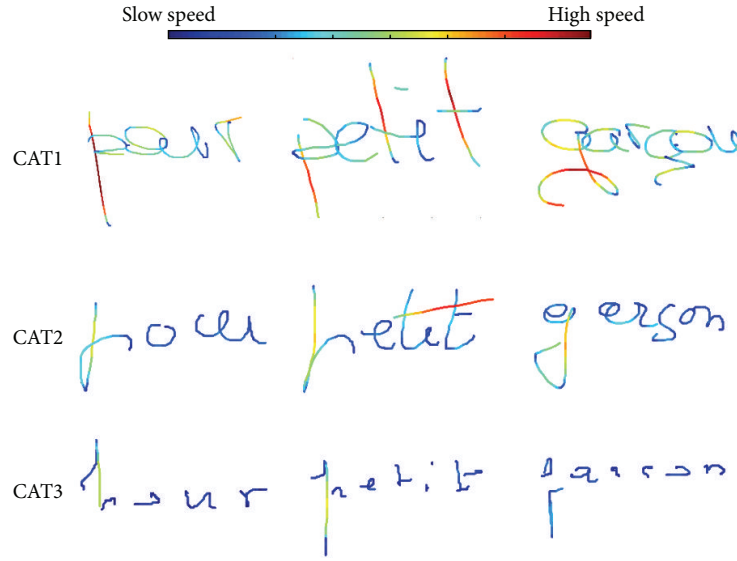 Slow speed High speed
CAT1 pour petit garçon
CAT2 pou petit garson
CAT3 pour petit garson